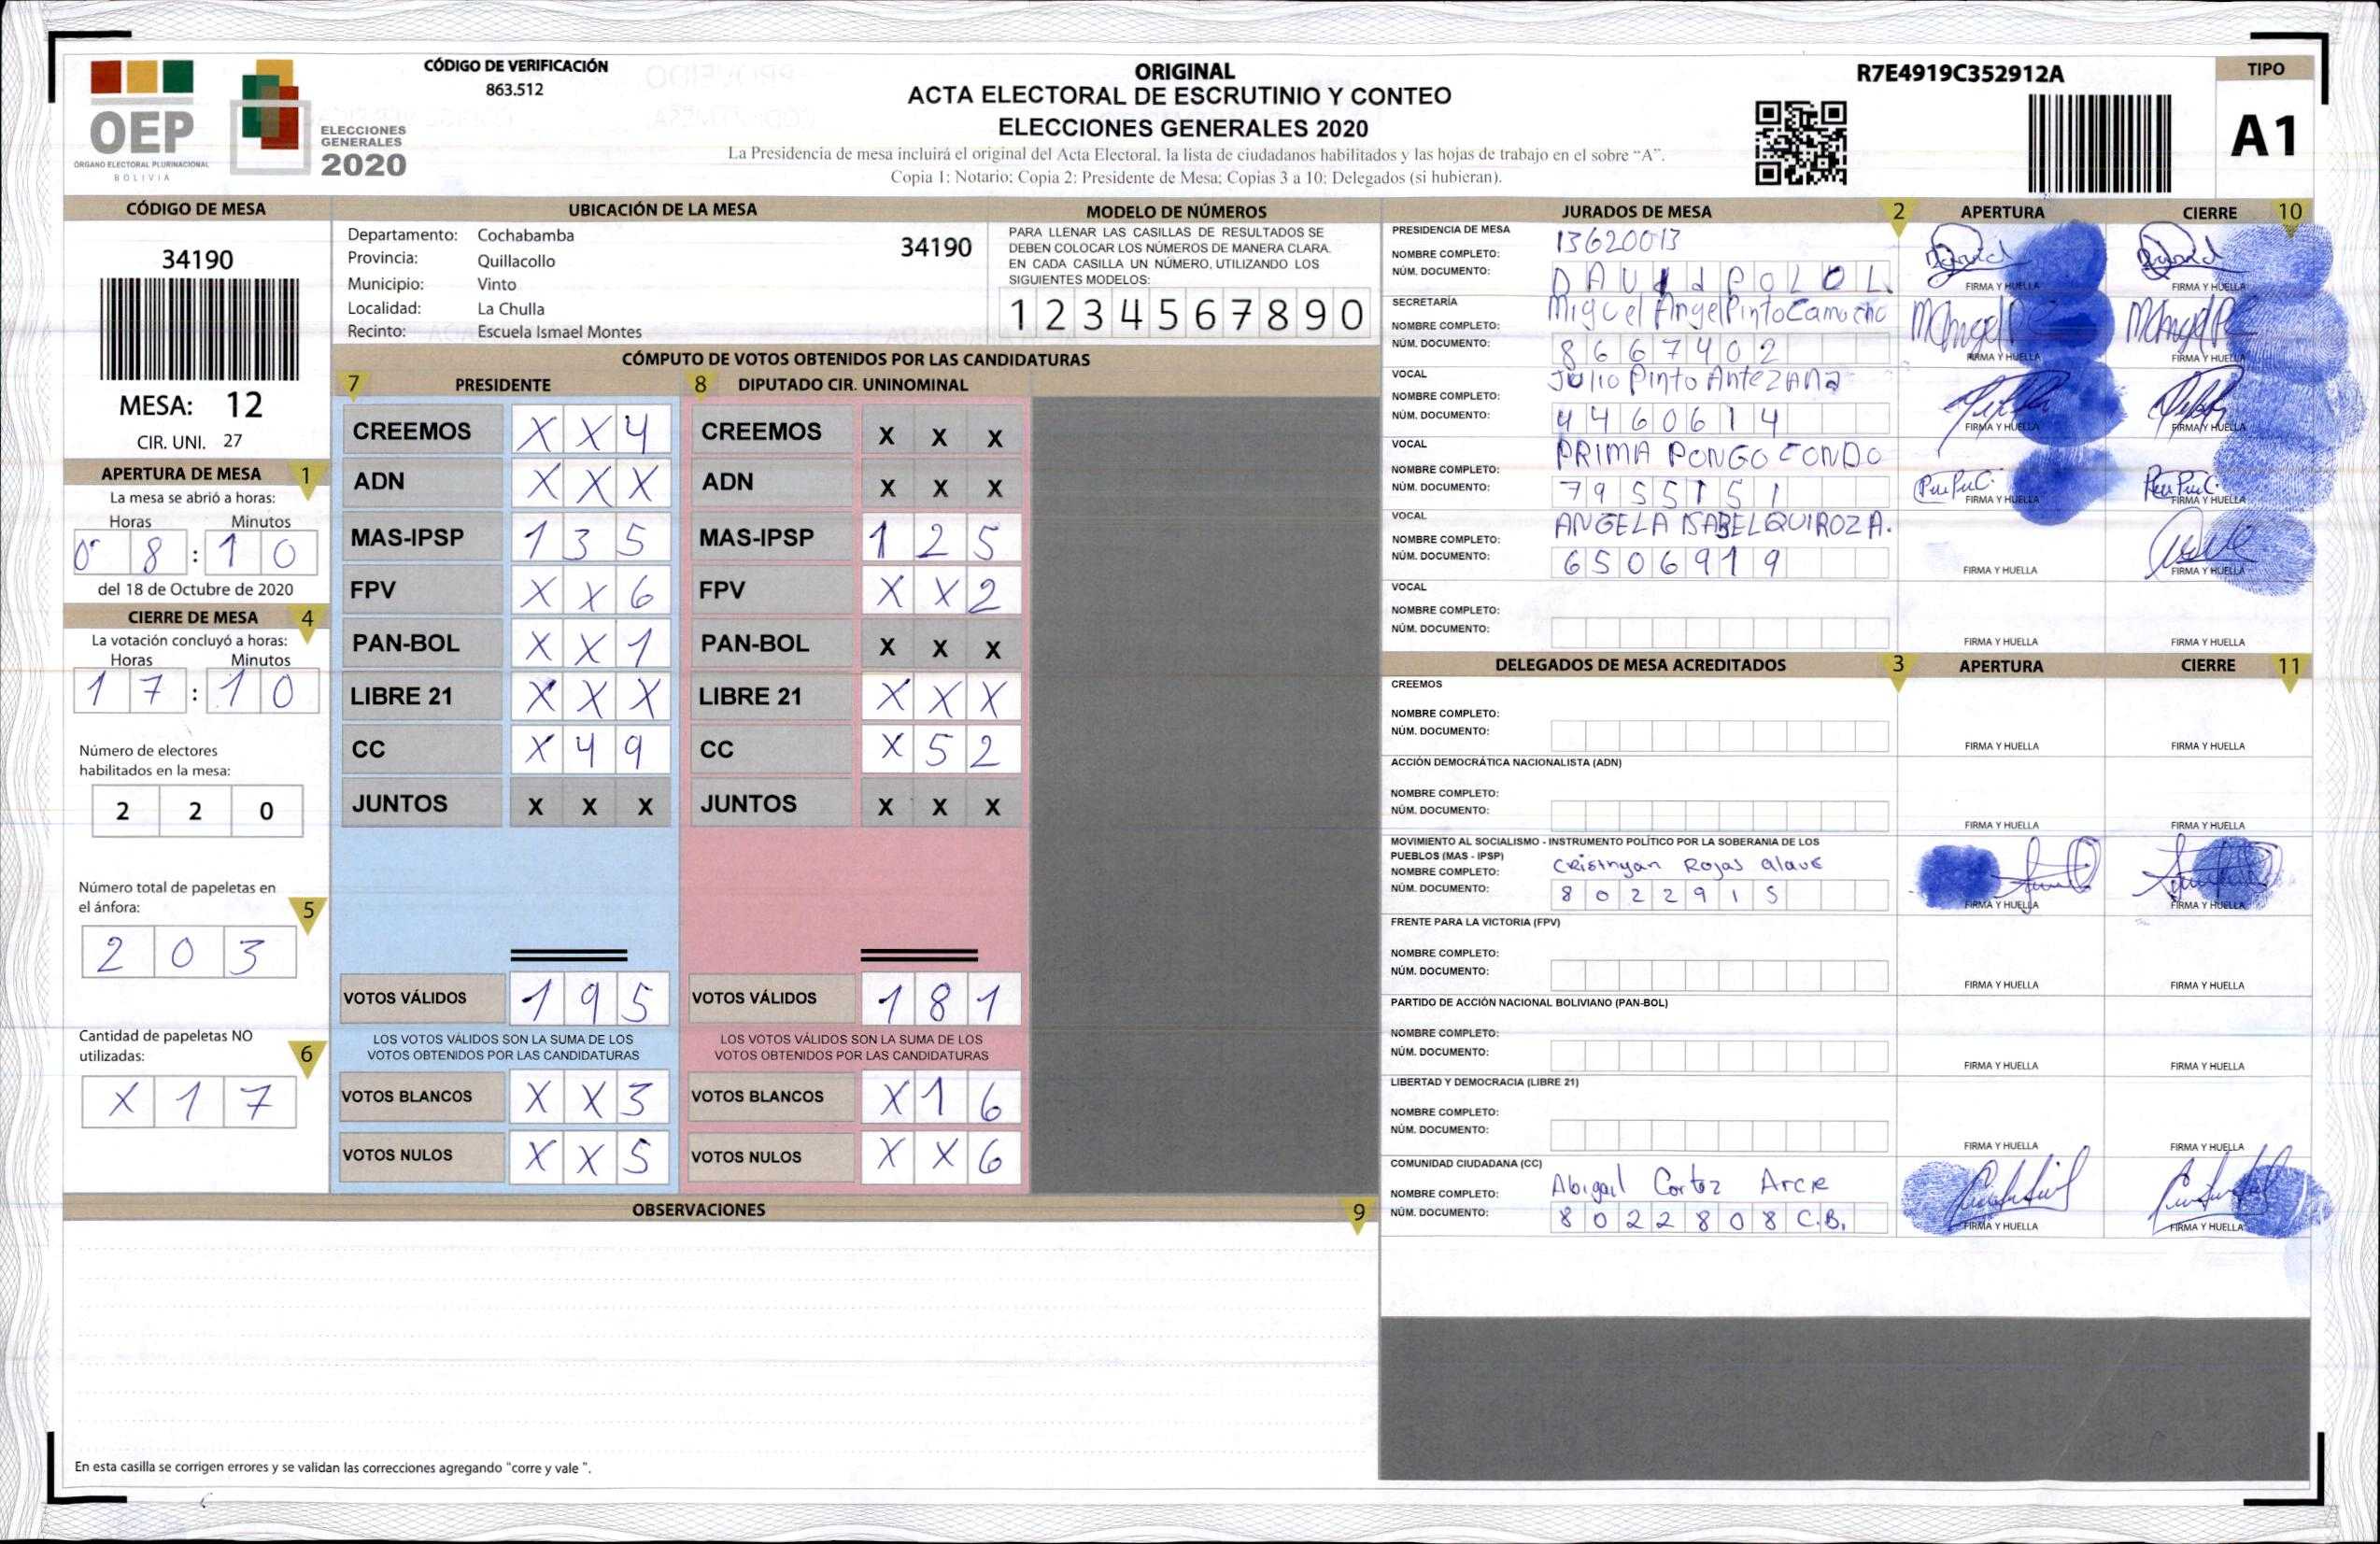 OEP
ÓRGANO ELECTORAL PLURINACIONAL
BOLIVIA
ELECCIONES
GENERALES
2020
CÓDIGO DE VERIFICACIÓN
863.512
ORIGINAL
ACTA ELECTORAL DE ESCRUTINIO Y CONTEO
ELECCIONES GENERALES 2020
La Presidencia de mesa incluirá el original del Acta Electoral, la lista de ciudadanos habilitados y las hojas de trabajo en el sobre "A".
Copia 1: Notario; Copia 2: Presidente de Mesa; Copias 3 a 10: Delegados (si hubieran).
R7E4919C352912A
TIPO
A1
CÓDIGO DE MESA
34190
MESA: 12
CIR. UNI. 27
APERTURA DE MESA 1
La mesa se abrió a horas:
Horas Minutos
0 8 : 1 0
del 18 de Octubre de 2020
CIERRE DE MESA 4
La votación concluyó a horas:
Horas Minutos
1 7 : 1 0
Número de electores
habilitados en la mesa:
2 2 0
Número total de papeletas en
el ánfora: 5
2 0 3
Cantidad de papeletas NO
utilizadas: 6
X 1 7
UBICACIÓN DE LA MESA
Departamento: Cochabamba
34190
Provincia: Quillacollo
Municipio: Vinto
Localidad: La Chulla
Recinto: Escuela Ismael Montes
MODELO DE NÚMEROS
PARA LLENAR LAS CASILLAS DE RESULTADOS SE
DEBEN COLOCAR LOS NÚMEROS DE MANERA CLARA.
EN CADA CASILLA UN NÚMERO, UTILIZANDO LOS
SIGUIENTES MODELOS:
1 2 3 4 5 6 7 8 9 0
CÓMPUTO DE VOTOS OBTENIDOS POR LAS CANDIDATURAS
7 PRESIDENTE 8 DIPUTADO CIR. UNINOMINAL
CREEMOS X X 4 CREEMOS X X X
ADN X X X ADN X X X
MAS-IPSP 1 3 5 MAS-IPSP 1 2 5
FPV X X 6 FPV X X 2
PAN-BOL X X 1 PAN-BOL X X X
LIBRE 21 X X X LIBRE 21 X X X
CC X 4 9 CC X 5 2
JUNTOS X X X JUNTOS X X X
VOTOS VÁLIDOS 1 9 5 VOTOS VÁLIDOS 1 8 1
LOS VOTOS VÁLIDOS SON LA SUMA DE LOS LOS VOTOS VÁLIDOS SON LA SUMA DE LOS
VOTOS OBTENIDOS POR LAS CANDIDATURAS VOTOS OBTENIDOS POR LAS CANDIDATURAS
VOTOS BLANCOS X X 3 VOTOS BLANCOS X 1 6
VOTOS NULOS X X 5 VOTOS NULOS X X 6
OBSERVACIONES 9
En esta casilla se corrigen errores y se validan las correcciones agregando "corre y vale ".
JURADOS DE MESA 2 APERTURA CIERRE 10
PRESIDENCIA DE MESA
NOMBRE COMPLETO: 13620013
NÚM. DOCUMENTO: D A V I d P O L O L.
FIRMA Y HUELLA FIRMA Y HUELLA
SECRETARÍA
NOMBRE COMPLETO: Miguel Angel Pinto Camacho
NÚM. DOCUMENTO: 8 6 6 7 4 0 2
FIRMA Y HUELLA FIRMA Y HUELLA
VOCAL
NOMBRE COMPLETO: Julio Pinto Antezana
NÚM. DOCUMENTO: 4 4 6 0 6 1 4
FIRMA Y HUELLA FIRMA Y HUELLA
VOCAL
NOMBRE COMPLETO: PRIMA PONGO CONDO
NÚM. DOCUMENTO: 7 9 5 5 1 5 1
FIRMA Y HUELLA FIRMA Y HUELLA
VOCAL
NOMBRE COMPLETO: ANGELA ISABEL QUIROZ A.
NÚM. DOCUMENTO: 6 5 0 6 9 1 9
FIRMA Y HUELLA FIRMA Y HUELLA
VOCAL
NOMBRE COMPLETO:
NÚM. DOCUMENTO:
FIRMA Y HUELLA FIRMA Y HUELLA
DELEGADOS DE MESA ACREDITADOS 3 APERTURA CIERRE 11
CREEMOS
NOMBRE COMPLETO:
NÚM. DOCUMENTO:
FIRMA Y HUELLA FIRMA Y HUELLA
ACCIÓN DEMOCRÁTICA NACIONALISTA (ADN)
NOMBRE COMPLETO:
NÚM. DOCUMENTO:
FIRMA Y HUELLA FIRMA Y HUELLA
MOVIMIENTO AL SOCIALISMO - INSTRUMENTO POLÍTICO POR LA SOBERANIA DE LOS
PUEBLOS (MAS - IPSP)
NOMBRE COMPLETO: Cristhyan Rojas Alave
NÚM. DOCUMENTO: 8 0 2 2 9 1 5
FIRMA Y HUELLA FIRMA Y HUELLA
FRENTE PARA LA VICTORIA (FPV)
NOMBRE COMPLETO:
NÚM. DOCUMENTO:
FIRMA Y HUELLA FIRMA Y HUELLA
PARTIDO DE ACCIÓN NACIONAL BOLIVIANO (PAN-BOL)
NOMBRE COMPLETO:
NÚM. DOCUMENTO:
FIRMA Y HUELLA FIRMA Y HUELLA
LIBERTAD Y DEMOCRACIA (LIBRE 21)
NOMBRE COMPLETO:
NÚM. DOCUMENTO:
FIRMA Y HUELLA FIRMA Y HUELLA
COMUNIDAD CIUDADANA (CC)
NOMBRE COMPLETO: Abigail Cortez Arce
NÚM. DOCUMENTO: 8 0 2 2 8 0 8 C.B.
FIRMA Y HUELLA FIRMA Y HUELLA